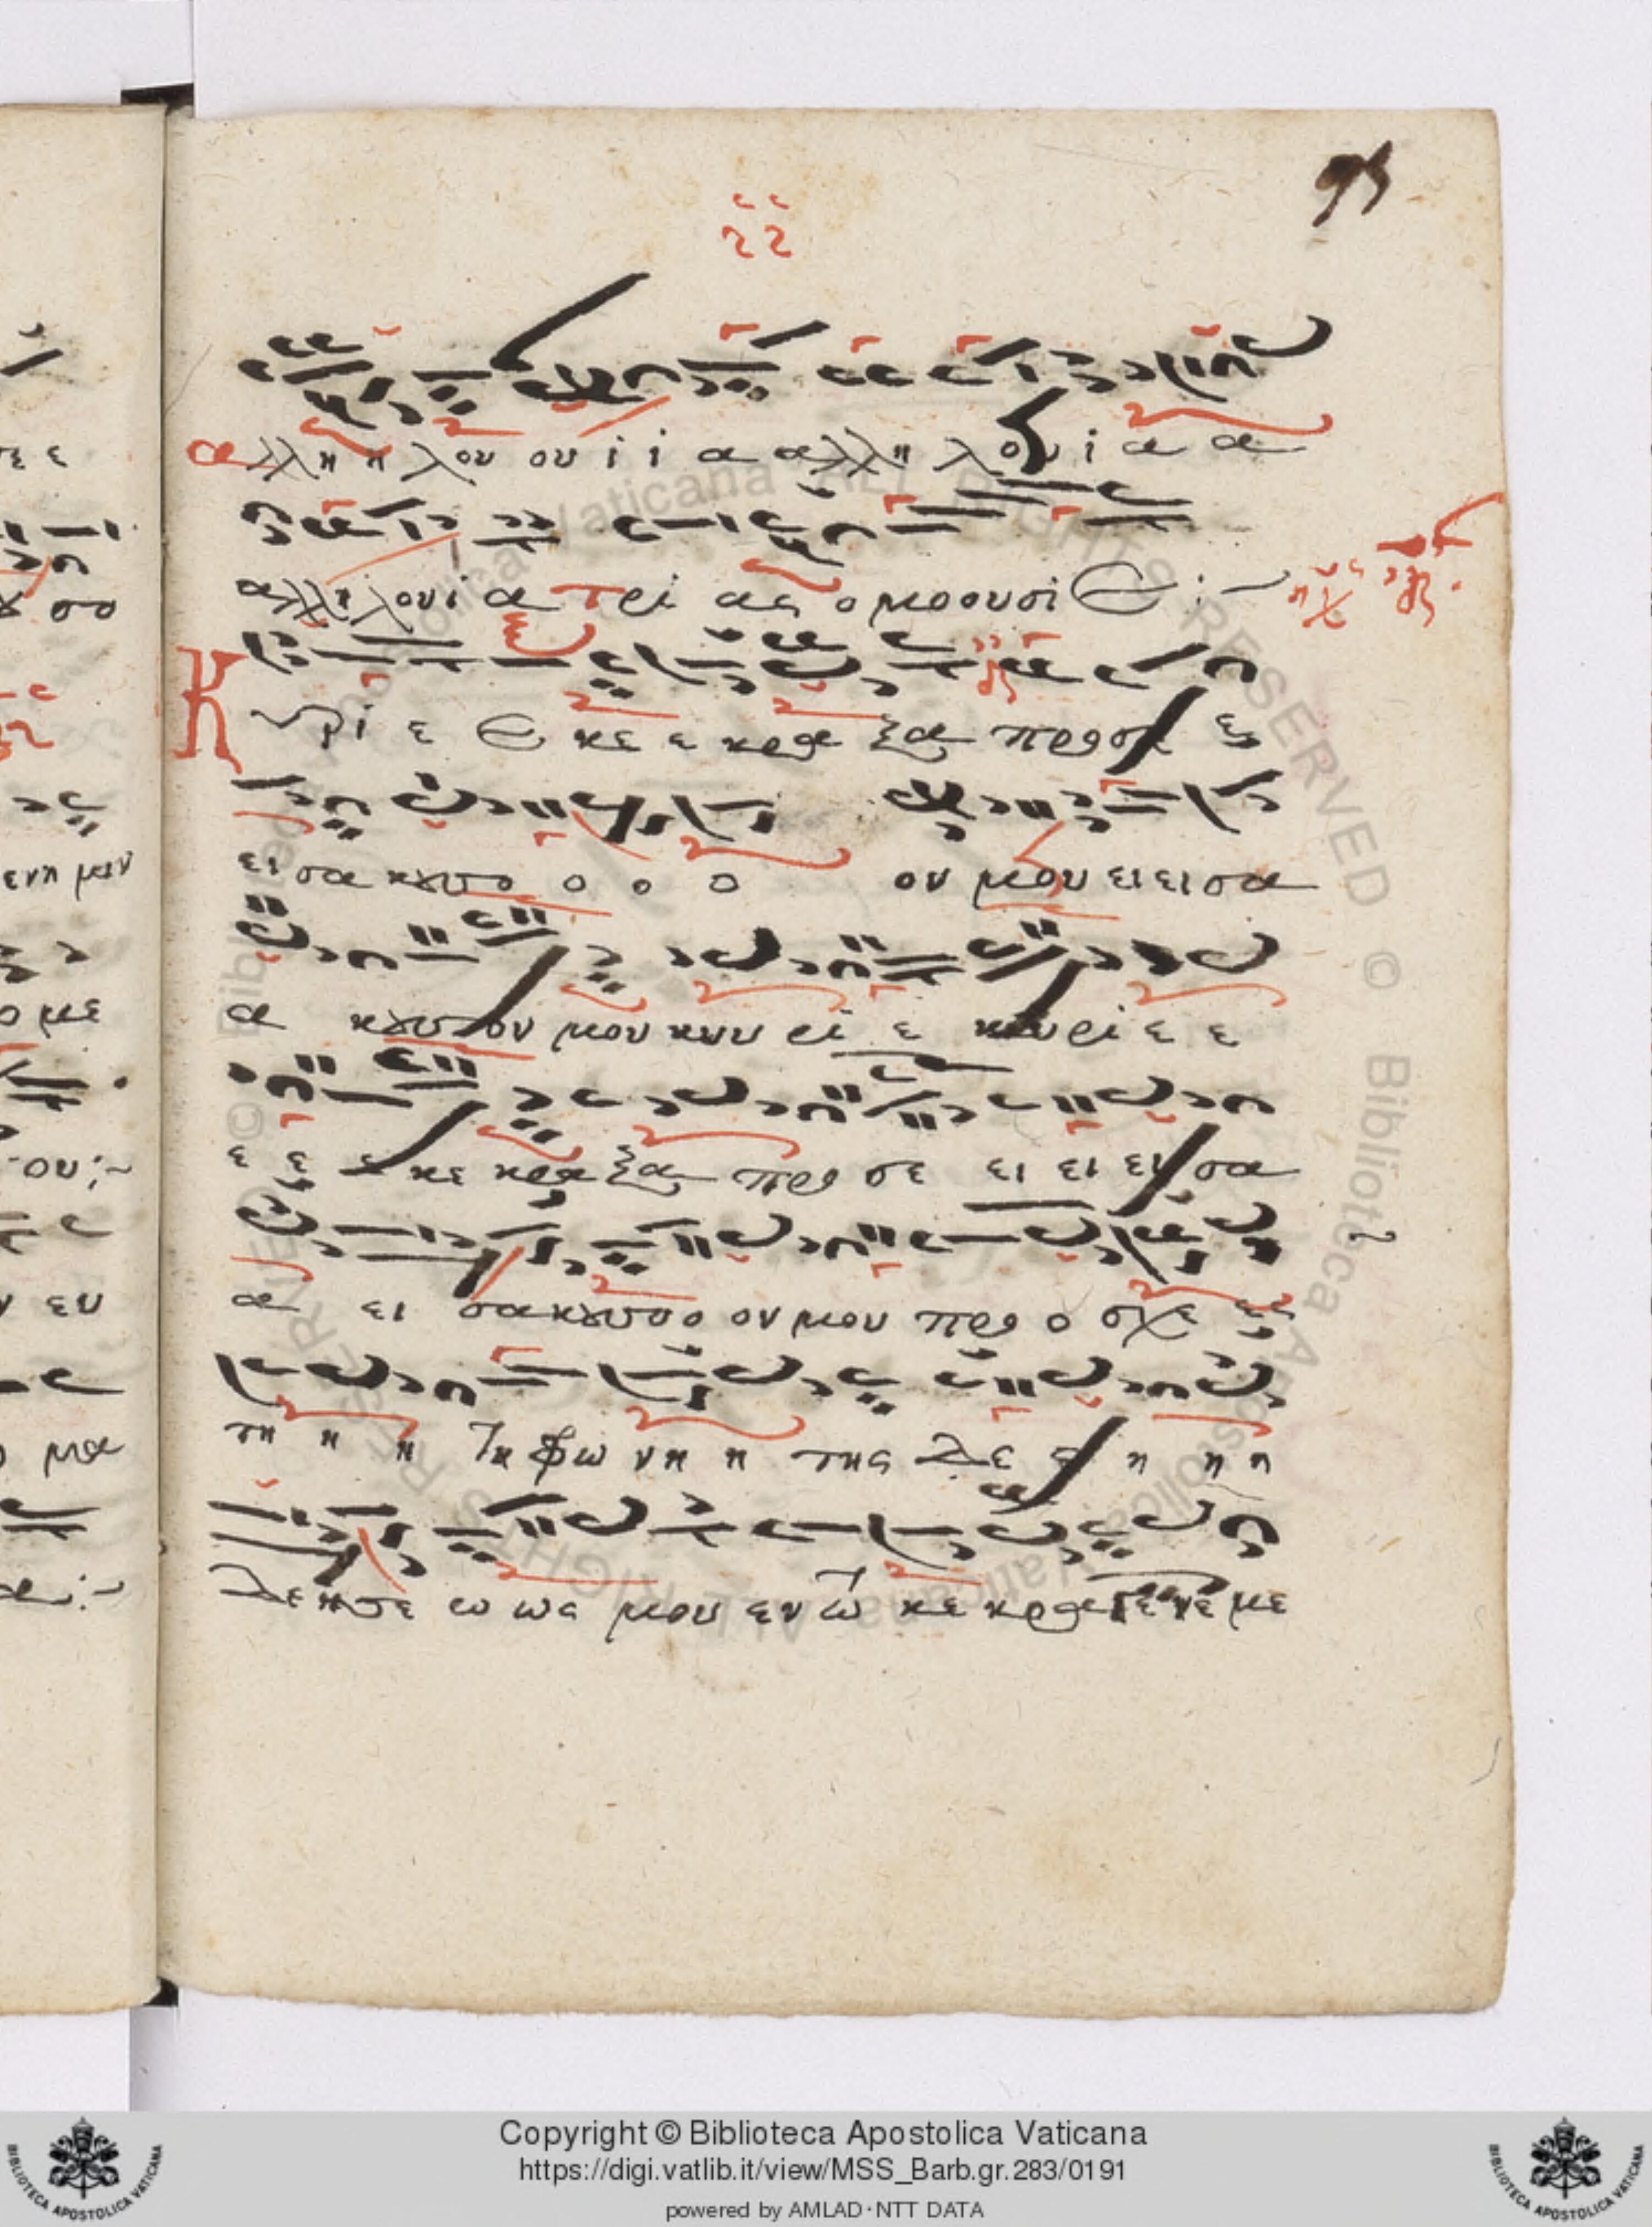 95
αλληηλουουιιααλληλουιαα
αλληλουια τριας ομοουσιε :~
Κυριε ε κε ε κραξα προς σε ε
εισακουσο ο ο ο ον μου ειεισα
α κουσον μου κυυριε κυριε ε
ε ε ε κε κραξα προ σε ει ει ει σα
α ει σακουσοο ον μου προ ο σχε ες
τη η η τη φω νη η της δε ε η η η
δεησε ω ως μου εν τω κε κραγενε με
Copyright © Biblioteca Apostolica Vaticana
https://digi.vatlib.it/view/MSS_Barb.gr.283/0191
powered by AMLAD·NTT DATA